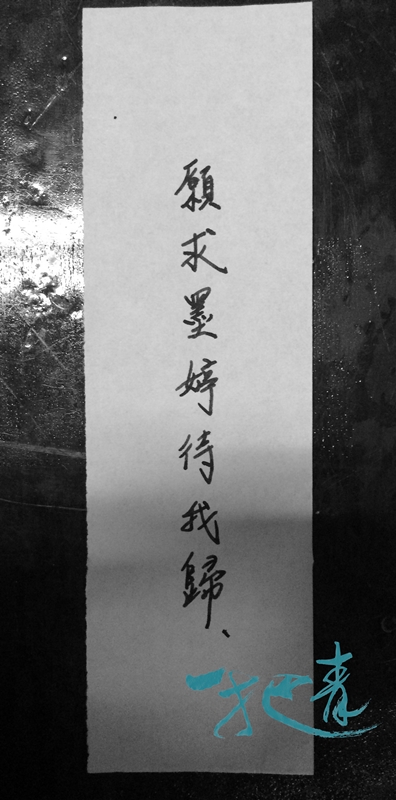 願求墨婷待我歸、
一把青